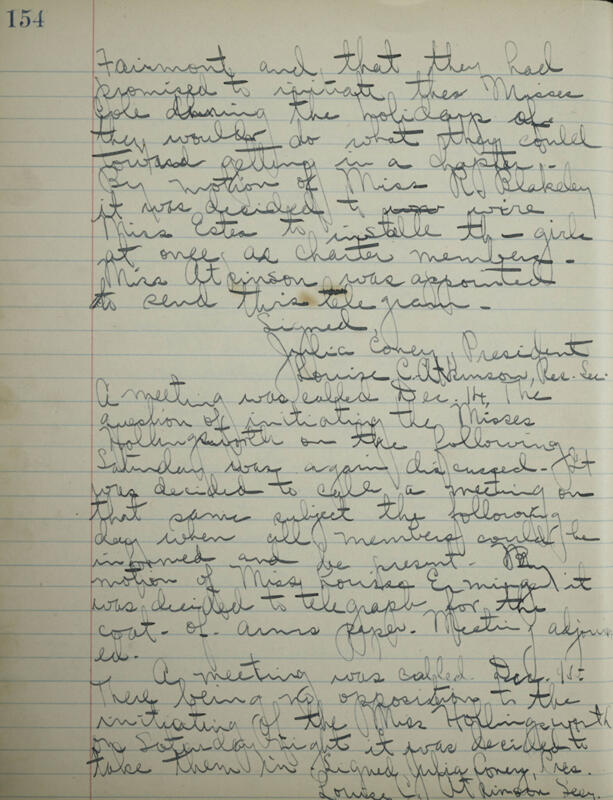 154
Fairmont and that they had
promised to initiate the Misses
Cole during the holidays or
they would do what they could
toward getting in a chapter.
By motion of Miss R. Blakeley
it was decided to wire
Miss Estes to installe th- girls
at once as charter members.
Miss Atkinson was appointed
to send this telegram -
Signed,
Julia Coney, President
Louise C. Atkinson, Rec. Sec.
A meeting was called Dec. 14, The
question of initiating the Misses
Hollingsworth on the following
Saturday was again discussed. It
was decided to call a meeting on
that same subject the following
day when all members could be
informed and be present. By
motion of Miss Louise it
was decided to telegraph for the
coat-of-arms paper. Meeting adjourn
ed.
A meeting was called Dec. 15.
There being no opposition to the
initiating of the Miss Hollingsworth
on Saturday night it was decided to
take them in Signed Julia Coney, Pres.
Louise C. Atkinson Secy.